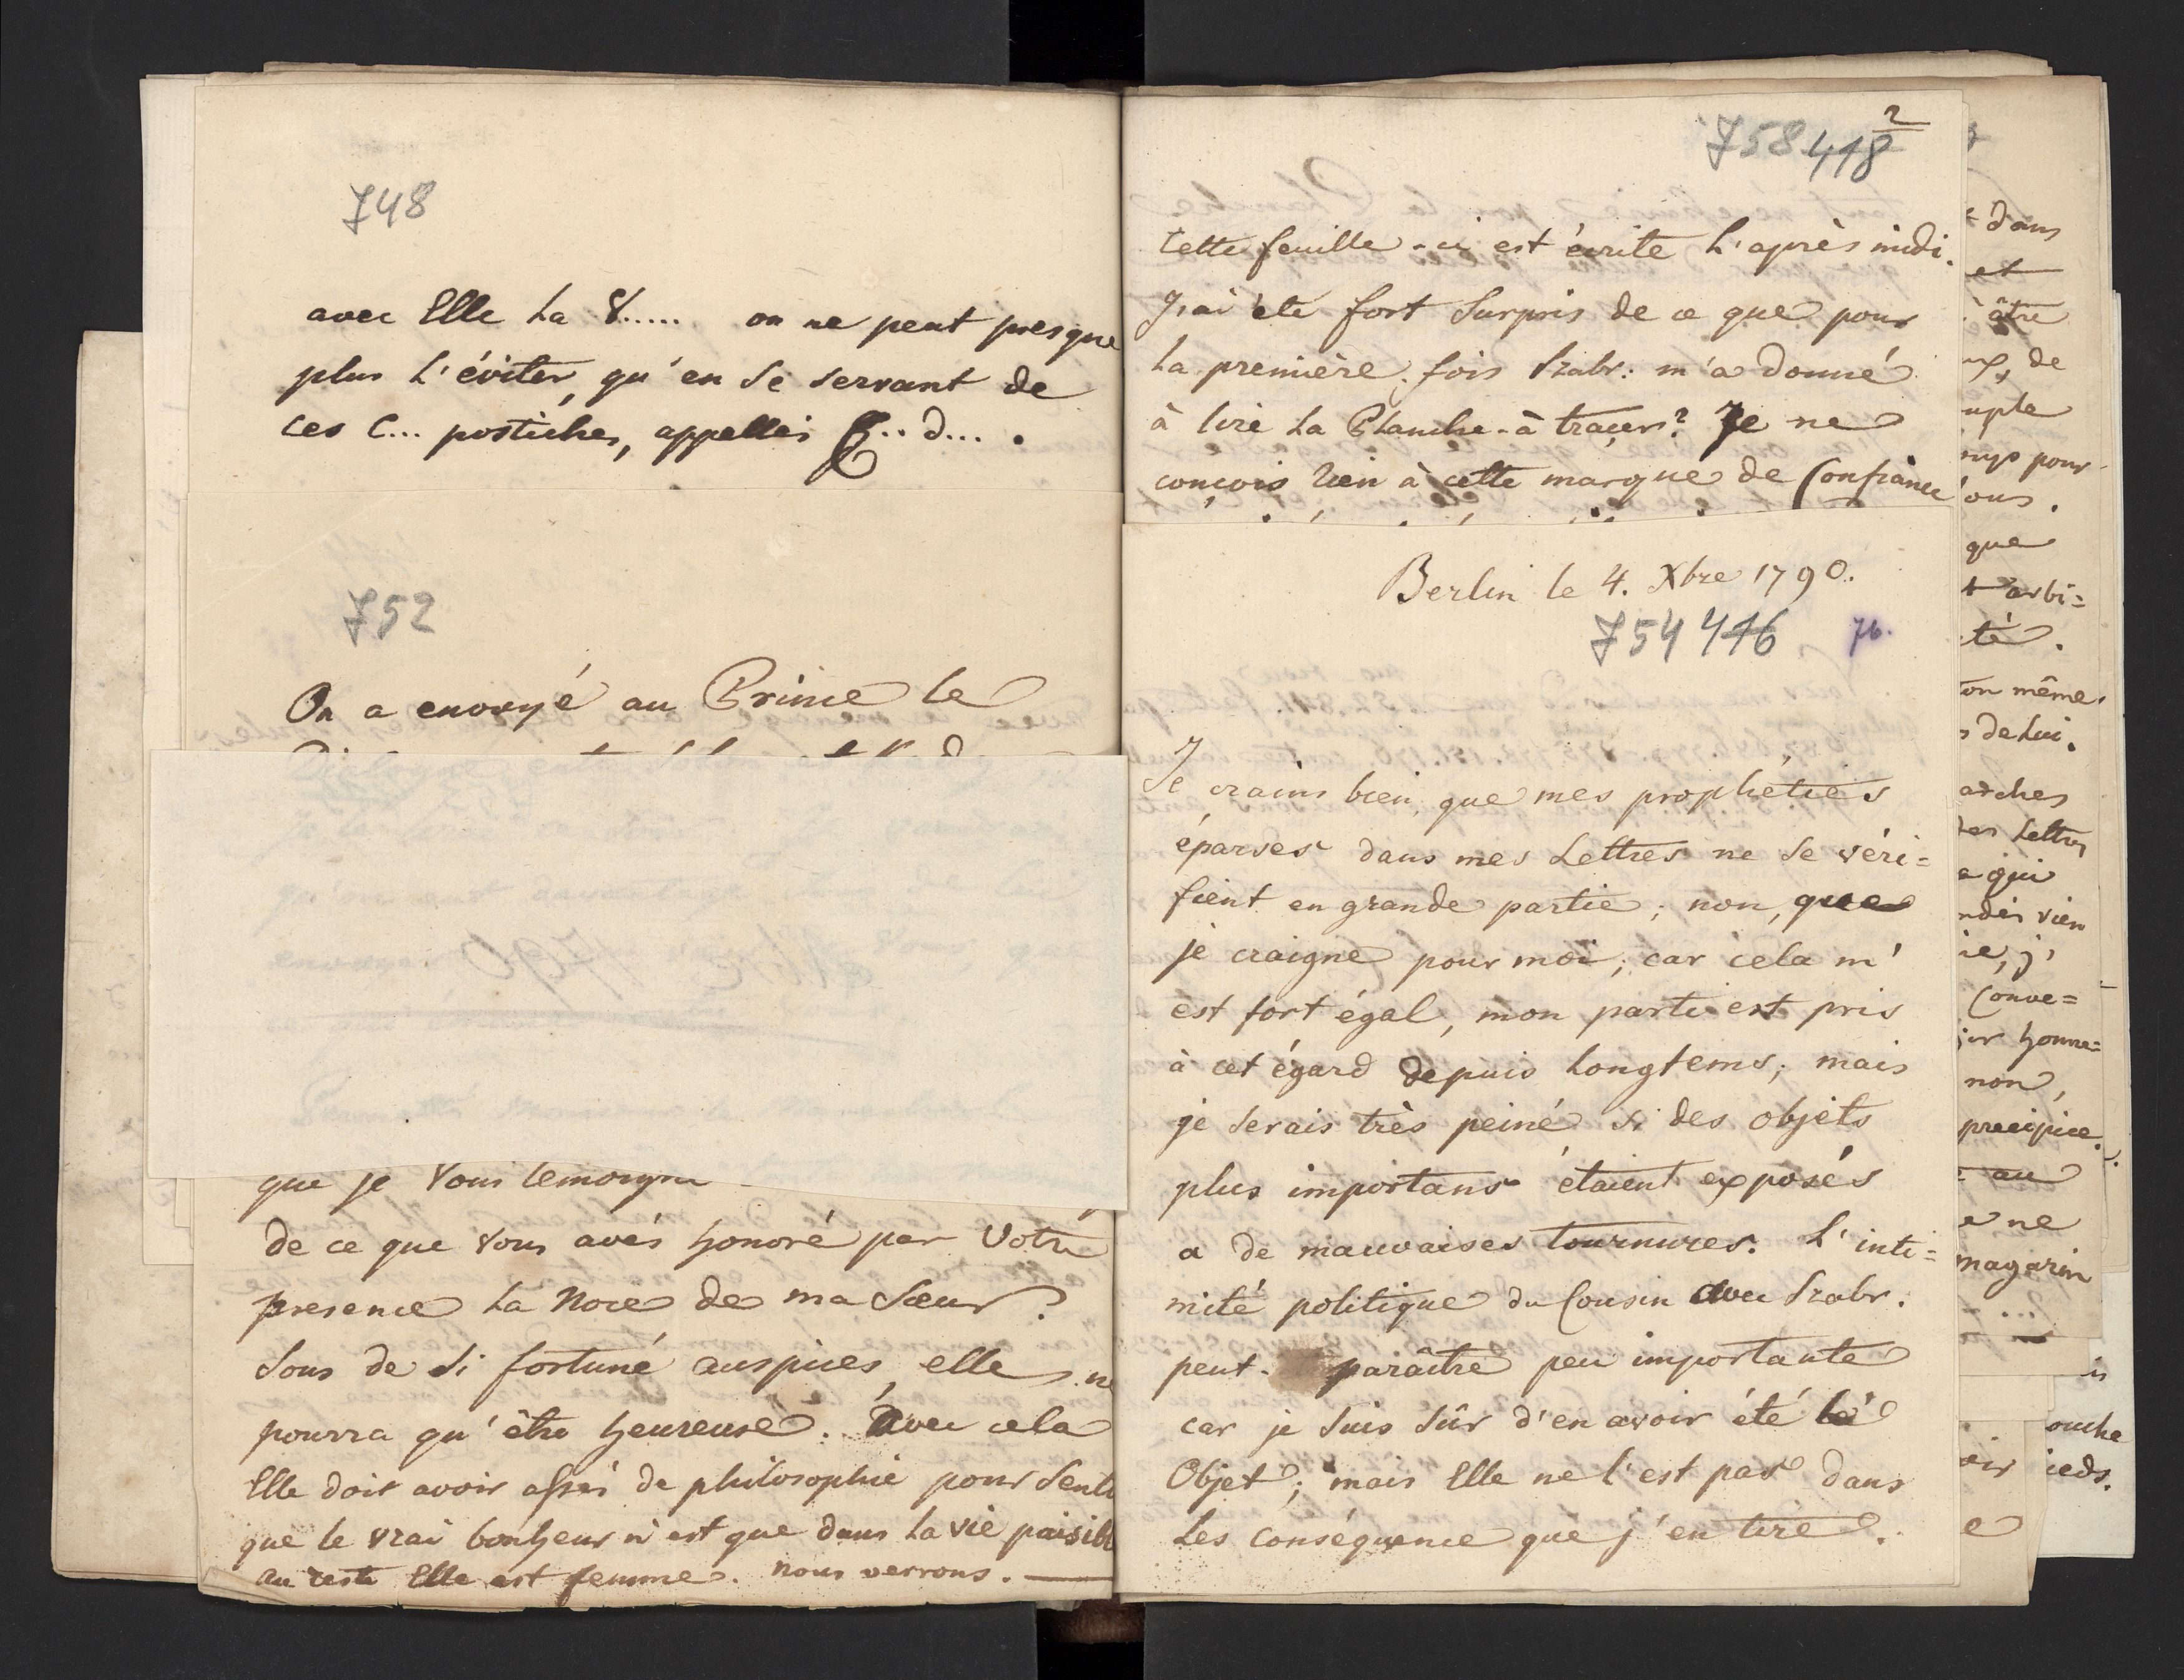 748
avec Elle La V..... on ne peut presque
plus L'éviter, qu'en se servant de
ces C... postiches, appellés G... d... .
752
On a envoyé au Prince le
que je Vous temoigne
de ce que Vous avés honoré par Votre
presence La Noce de ma Sœur?
Sous de si fortuné auspices, elle ne
pourra qu'être heureuse. Avec cela
Elle doit avoir assés de philosophie pour Senti
que le vrai bonheur n'est que dans La vie paisibl
au reste Elle est femme. nous verrons. —
2
758 418
Cette feuille-ci est écrite L'après midi.
J'ai été fort Surpris de ce que pour
La première fois Szabr: m'a donné
à lire La Planche-à tracer? Je ne
conçois rien à cette marque de Confiance
Berlin le 4. Xbre 1790.
754 416 76.
Je crains bien que mes prophéties
éparses dans mes Lettres ne Se véri=
fient en grande partie; non, que
je craigne pour moi; car cela m'
est fort égal, mon parti est pris
à cet égard depuis Longtems; mais
je Serais très peiné, Si des objets
plus importans étaient exposés
a de mauvaises tournures. L'inti=
mité politique du Cousin avec Szabr.
peut- paraître peu importante
car je Suis Sûr d'en avoir été le
Objet; mais Elle ne l'est pas dans
Les conséquence que j'en tire.
dans
et
être
de
pour
ous.
que
arbi=
té.
on même
de Lui.
arches
Lettres
qui
rien
j'
Conve=
honne=
non,
precipice.
au
ne
magazin
ouche
ieds.